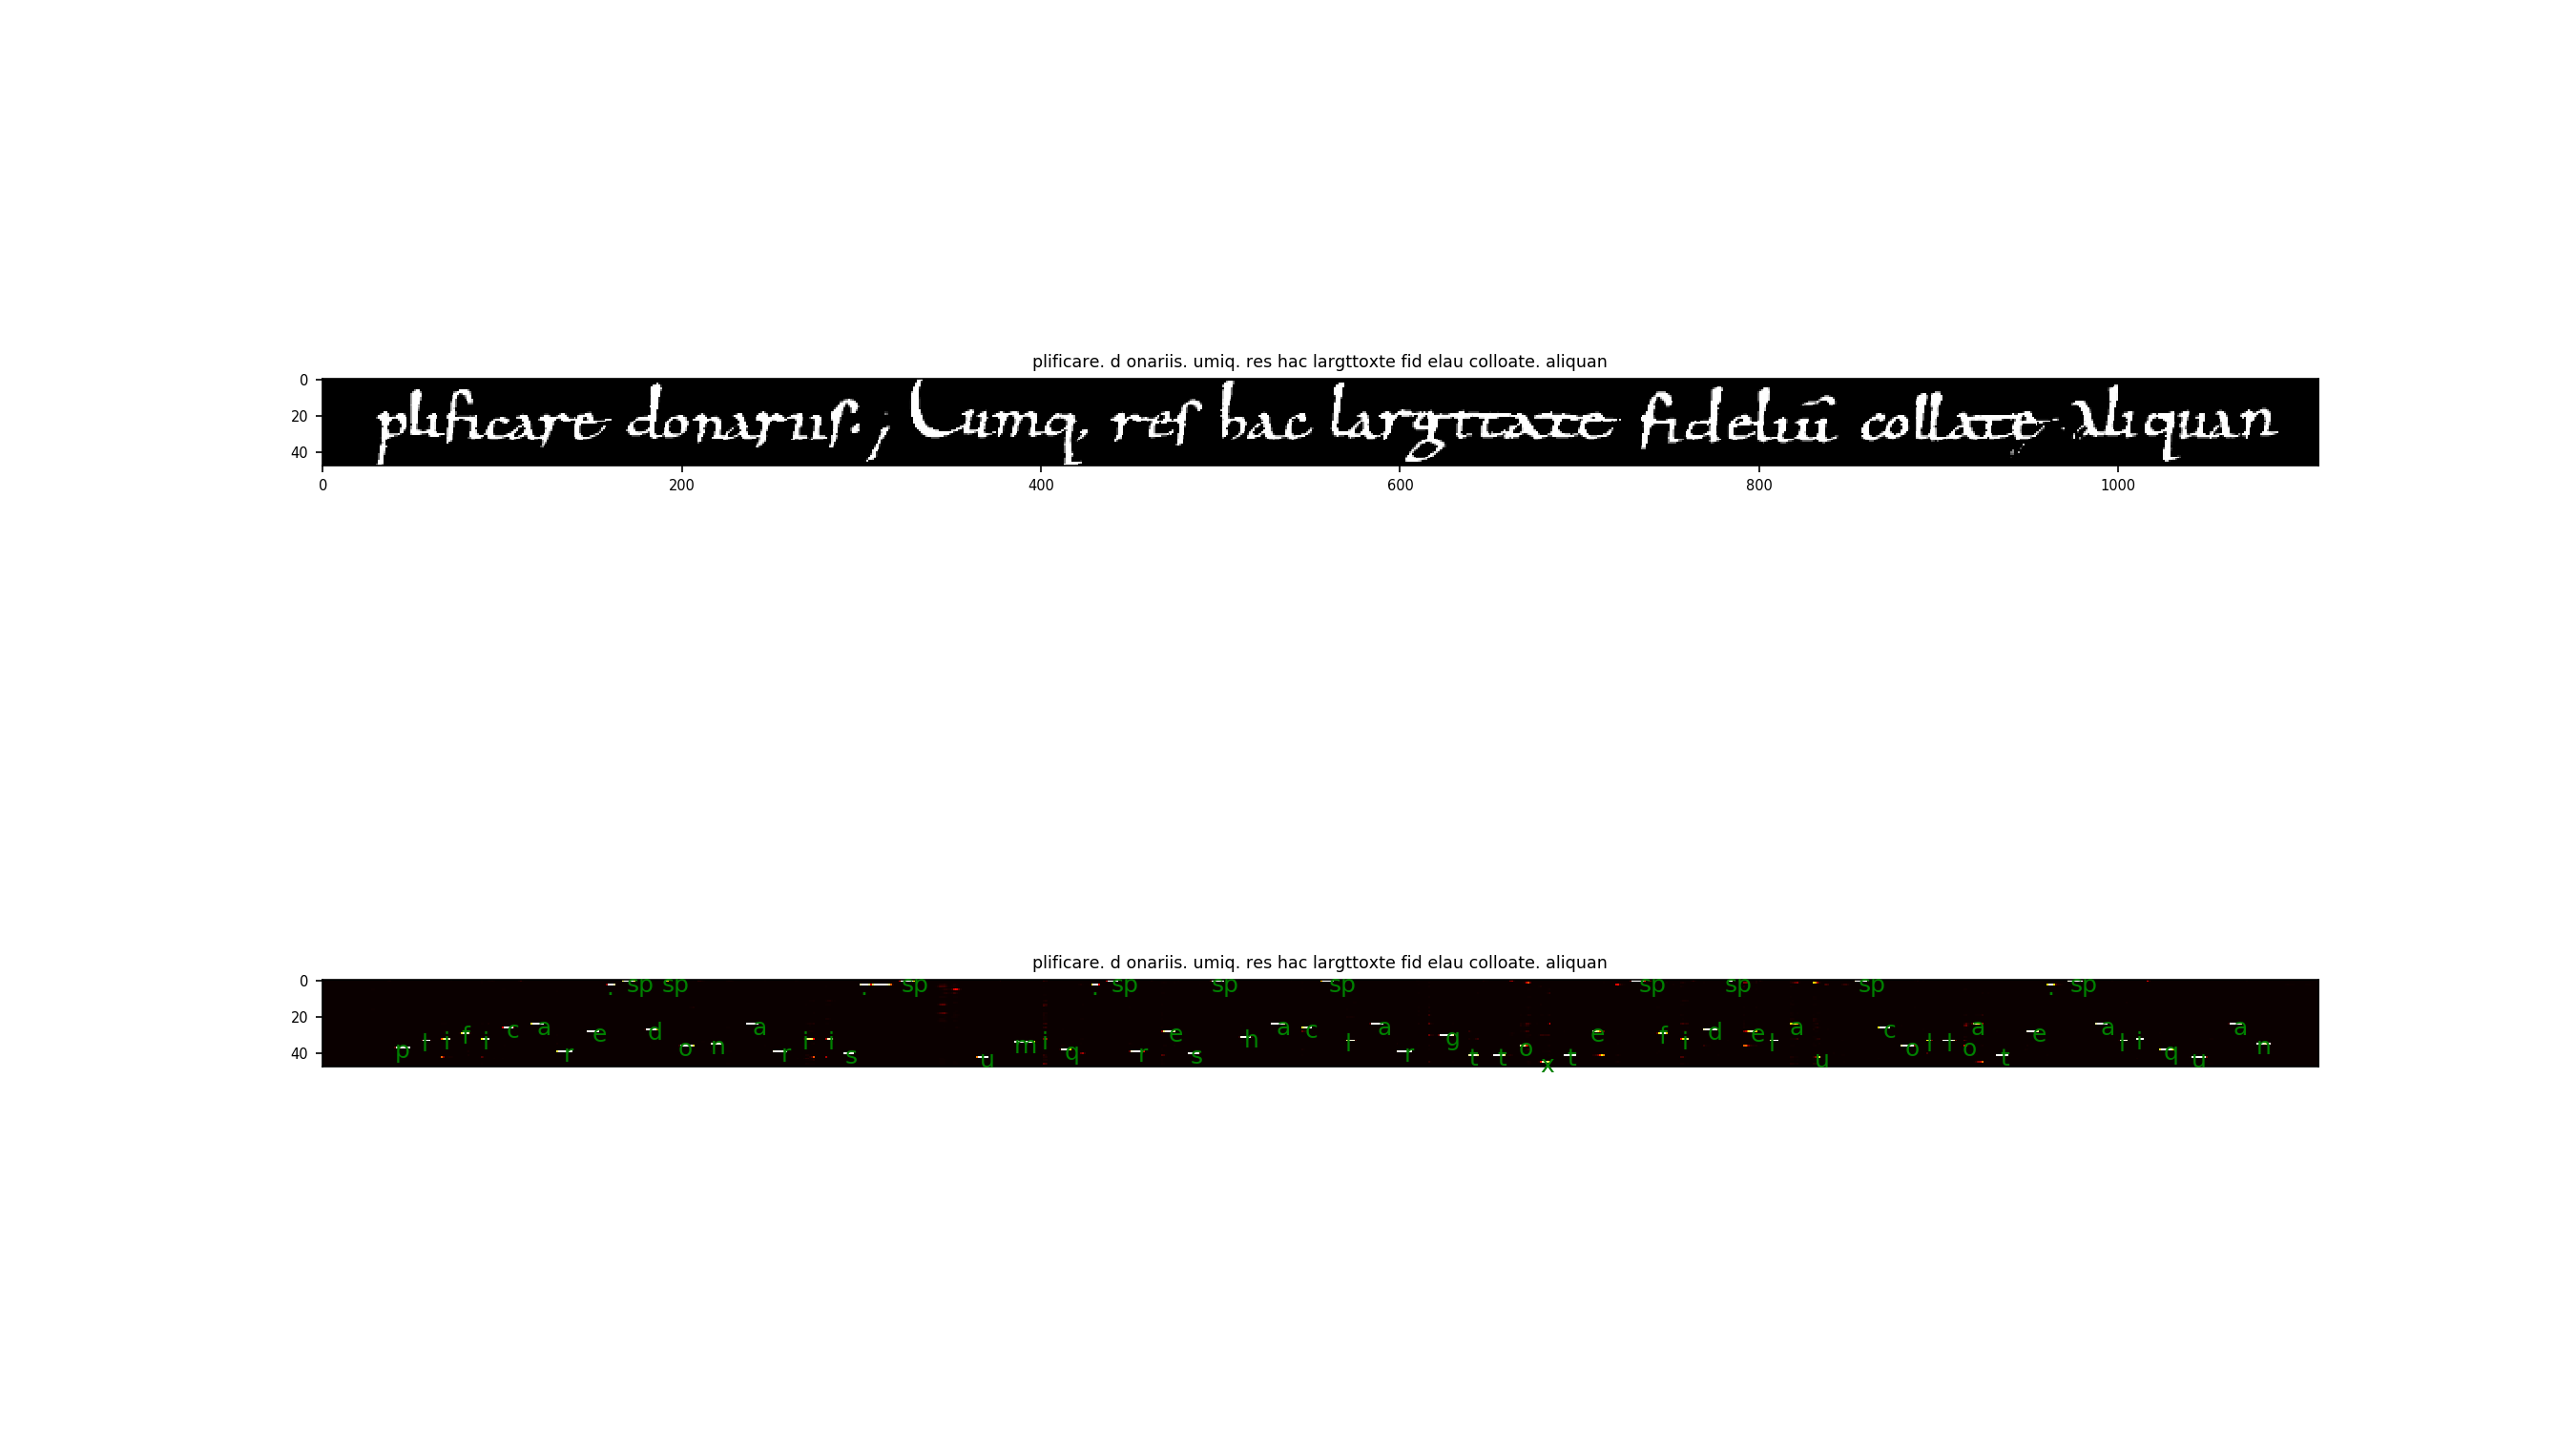 plificare. d onariis. umiq. res hac largttoxte fid elau colloate. aliquan
0
20
40
plificare donariis.; Cumq, res hac largitate fideliū collate aliquan
0 200 400 600 800 1000
plificare. d onariis. umiq. res hac largttoxte fid elau colloate. aliquan
0
20
40
. sp sp . sp . sp sp sp sp sp sp . sp
p l i f i c a r e d o n a r i i s u m i q r e s h a c l a r g t t o x t e f i d e l a u c o l l o a t e a l i q u a n